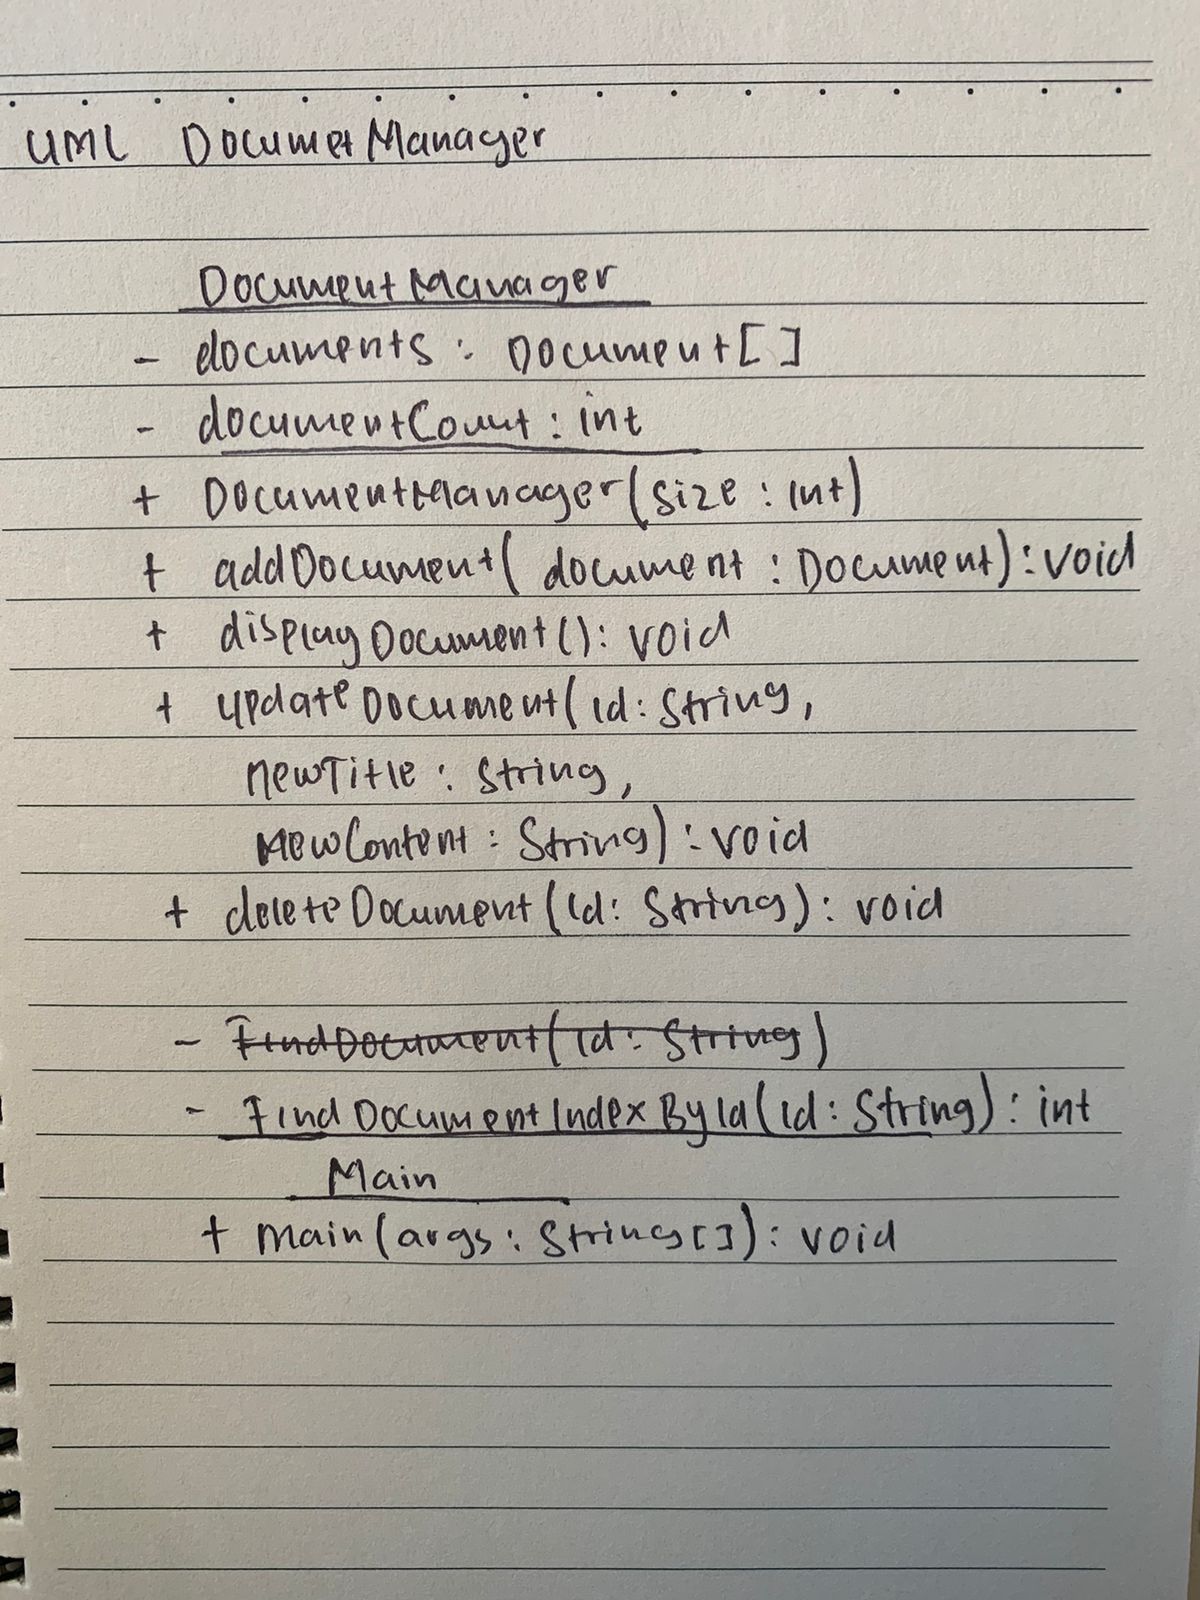 UML DocumetManager
DocumentManager
- documents : Document[]
- documentCount : int
+ DocumentManager(size : int)
+ addDocument( document : Document) : void
+ displayDocument() : void
+ updateDocument(id : String,
newTitle : String,
newContent : String) : void
+ deleteDocument (id : String) : void
- FindDocument(id : String)
- FindDocumentIndexById(id : String) : int
Main
+ main(args : String[]) : void